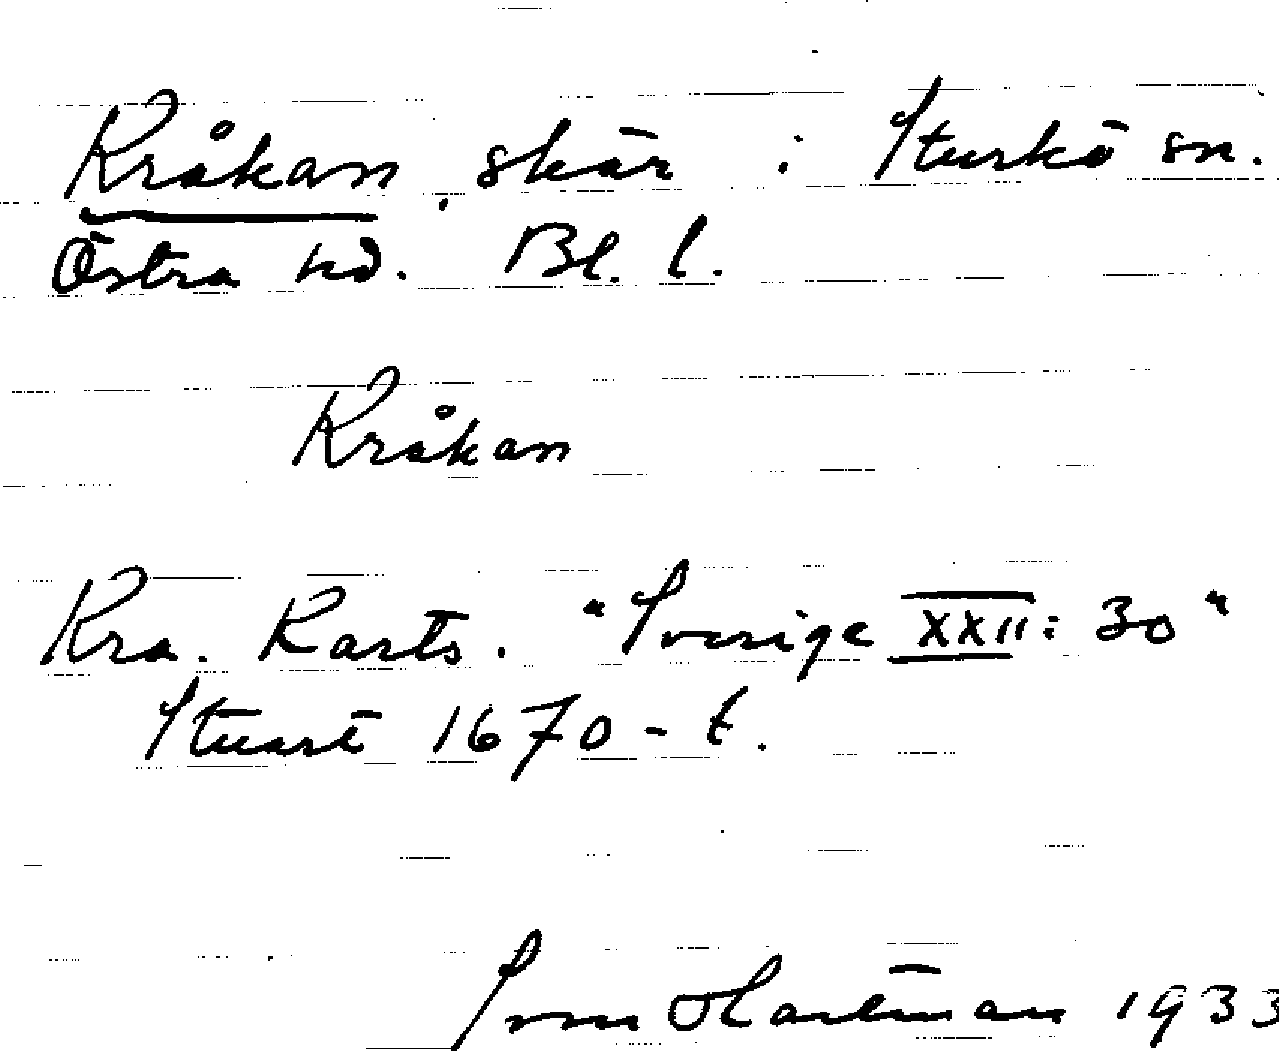 Kråkan, skär i Sturkö sn.
Östra hd. Bl. l.
Kråkan
Kra. Karts. "Sverige XXII: 30"
Stuart 1670-t.
Hartman 1933